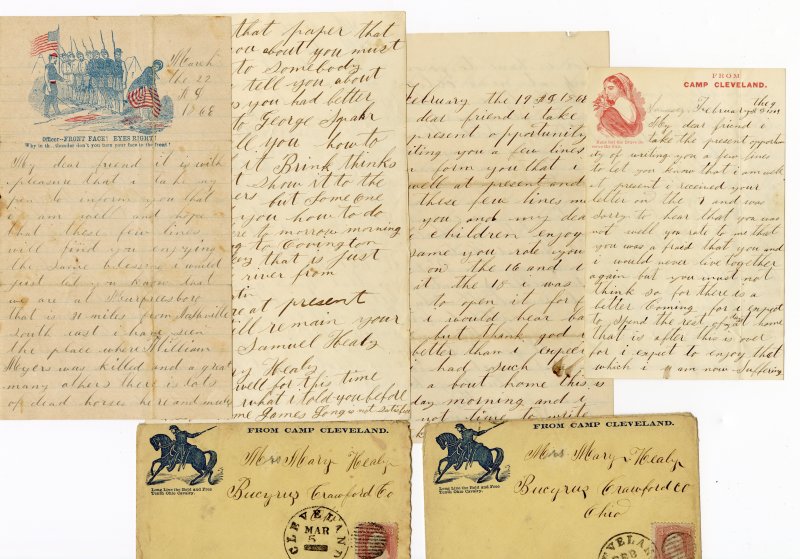 March
the 22
AD
1863
Officer—FRONT FACE! EYES RIGHT!
Why in th.. thunder don't you turn your face to the front!
My dear friend it is with
pleasure that i take my
pen to inform you that
i am well and hope
that these few lines
will find you enjoying
the same blessing i would
first let you know that
we are at Murfreesboro
that is 31 miles from Nashville
South east i have seen
the place where William
Myers was killed and a great
many others there is lots
of dead horses here and
that paper that
you about you must
to Somebody
tell you about
you had better
to George
you how to
it Brink thinks
t Show it to the
ers but Some one
you how to do
to morrow morning
g to Covington
that is just
river from
at present
ill remain your
Samuel Healy
y Healy
well for this time
what i told you before
James Long is not satisfied
February the 19 AD 1863
dear friend i take
present opportunity
iting you a few lines
n form you that i
well at present and
these few lines
you and my dear
children enjoy
same you rote you
on the 16 and i
it the 18 i was
to open it for f
i would hear ba
but thank god
better than i expec
i had such
a bout home this is
day morning and i
not time to write
FROM
CAMP CLEVELAND.
February the 9
My dear friend i
take the present opportun
ity of writing you a few lines
to let you know that i am well
at present i received your
letter on the 7 and was
Sorry to hear that you was
not well you rote to me that
you was a fraid that you and
i would never live together
again but you must not
think so for there is a
better Coming for i expect
to spend the rest of my days at home
that is after this is over
for i expect to enjoy that
which i am now Suffering
FROM CAMP CLEVELAND.
Long Live the Bold and Free
Tenth Ohio Cavalry.
Mrs Mary Healy
Bucyrus Crawford Co
CLEVELAND
MAR
5
FROM CAMP CLEVELAND.
Long Live the Bold and Free
Tenth Ohio Cavalry.
Mrs Mary Healy
Bucyrus Crawford Co
Ohio